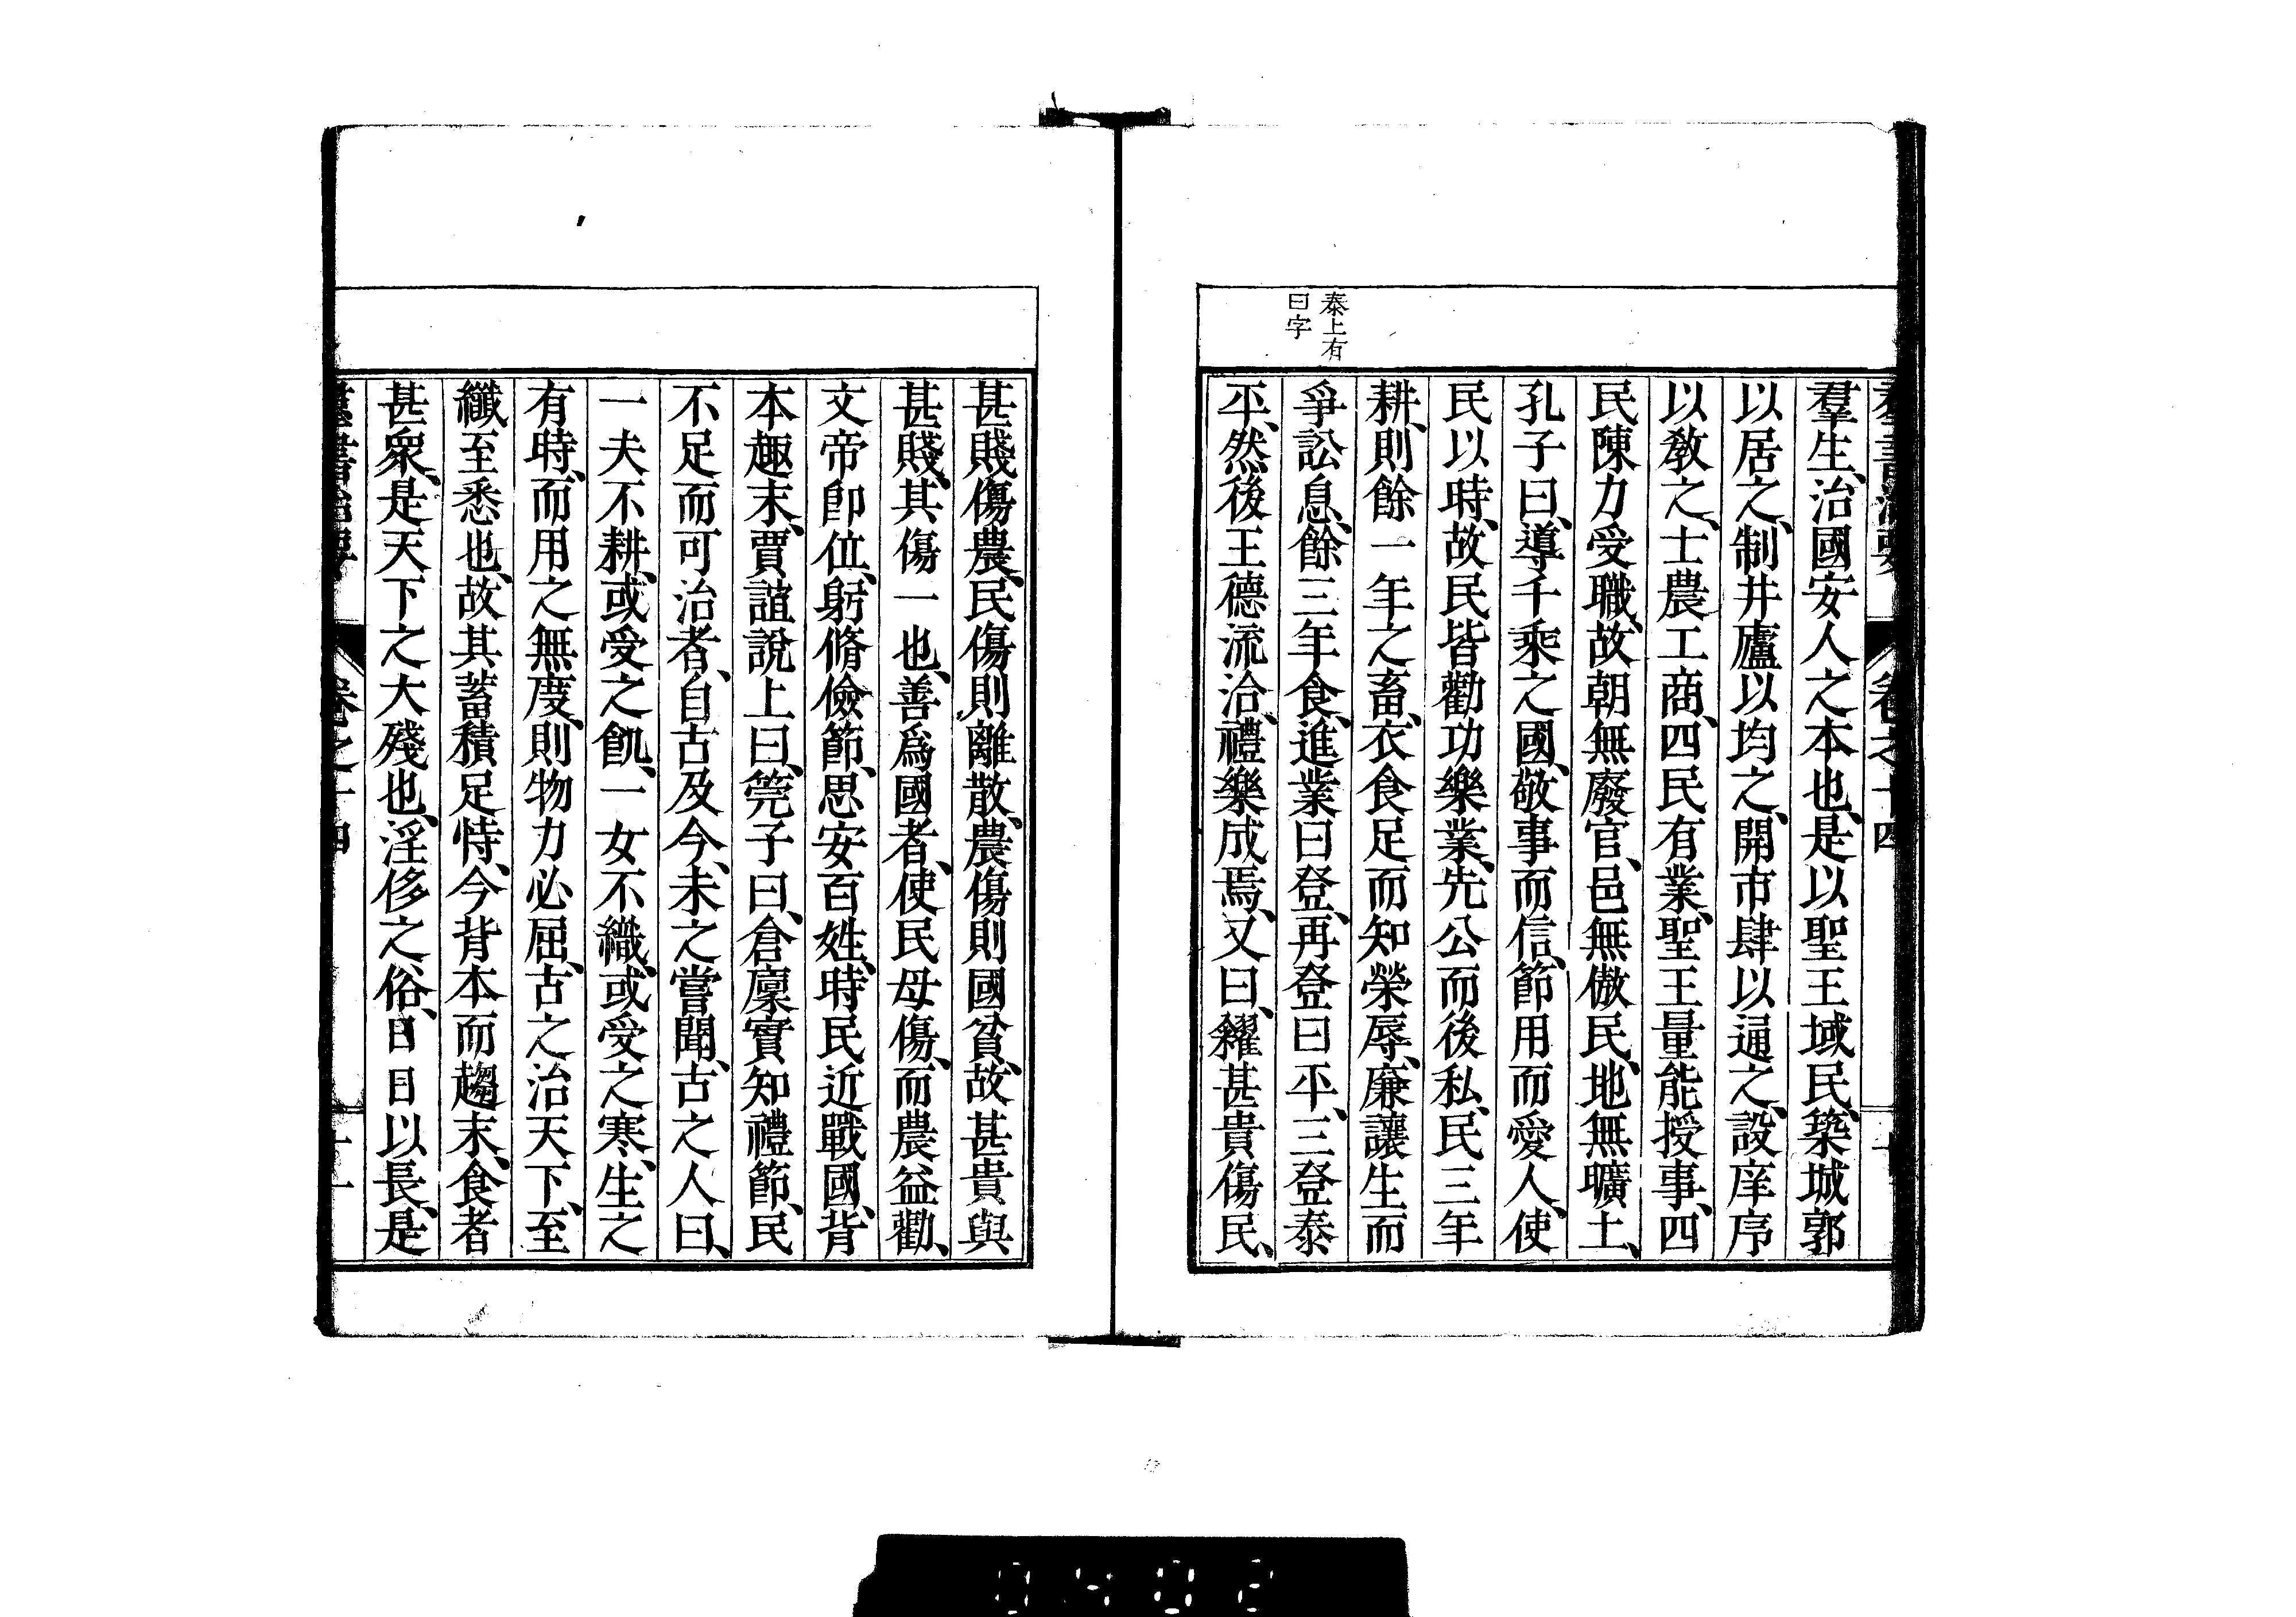 泰上有
曰字
羣生、治國安人之本也、是以聖王域民、築城郭
以居之、制井廬以均之、開市肆以通之、設庠序
以敎之、士農工商、四民有業、聖王量能授事、四
民陳力受職、故朝無廢官、邑無傲民、地無曠土、
孔子曰、導千乘之國、敬事而信、節用而愛人、使
民以時、故民皆勸功樂業、先公而後私、民三年
耕、則餘一年之畜、衣食足而知榮辱、廉讓生而
爭訟息、餘三年食、進業曰登、再登曰平、三登泰
平、然後王德流洽、禮樂成焉、又曰、糴甚貴傷民、
甚賤傷農、民傷則離散、農傷則國貧、故甚貴與
甚賤、其傷一也、善爲國者、使民母傷、而農益勸、
文帝卽位、躬脩儉節、思安百姓、時民近戰國、背
本趣末、賈誼說上曰、筦子曰、倉廩實知禮節、民
不足而可治者、自古及今、未之嘗聞、古之人曰、
一夫不耕、或受之飢、一女不織、或受之寒、生之
有時、而用之無度、則物力必屈、古之治天下、至
纖至悉也、故其蓄積足恃、今背本而趨末、食者
甚衆、是天下之大殘也、淫侈之俗、日日以長、是